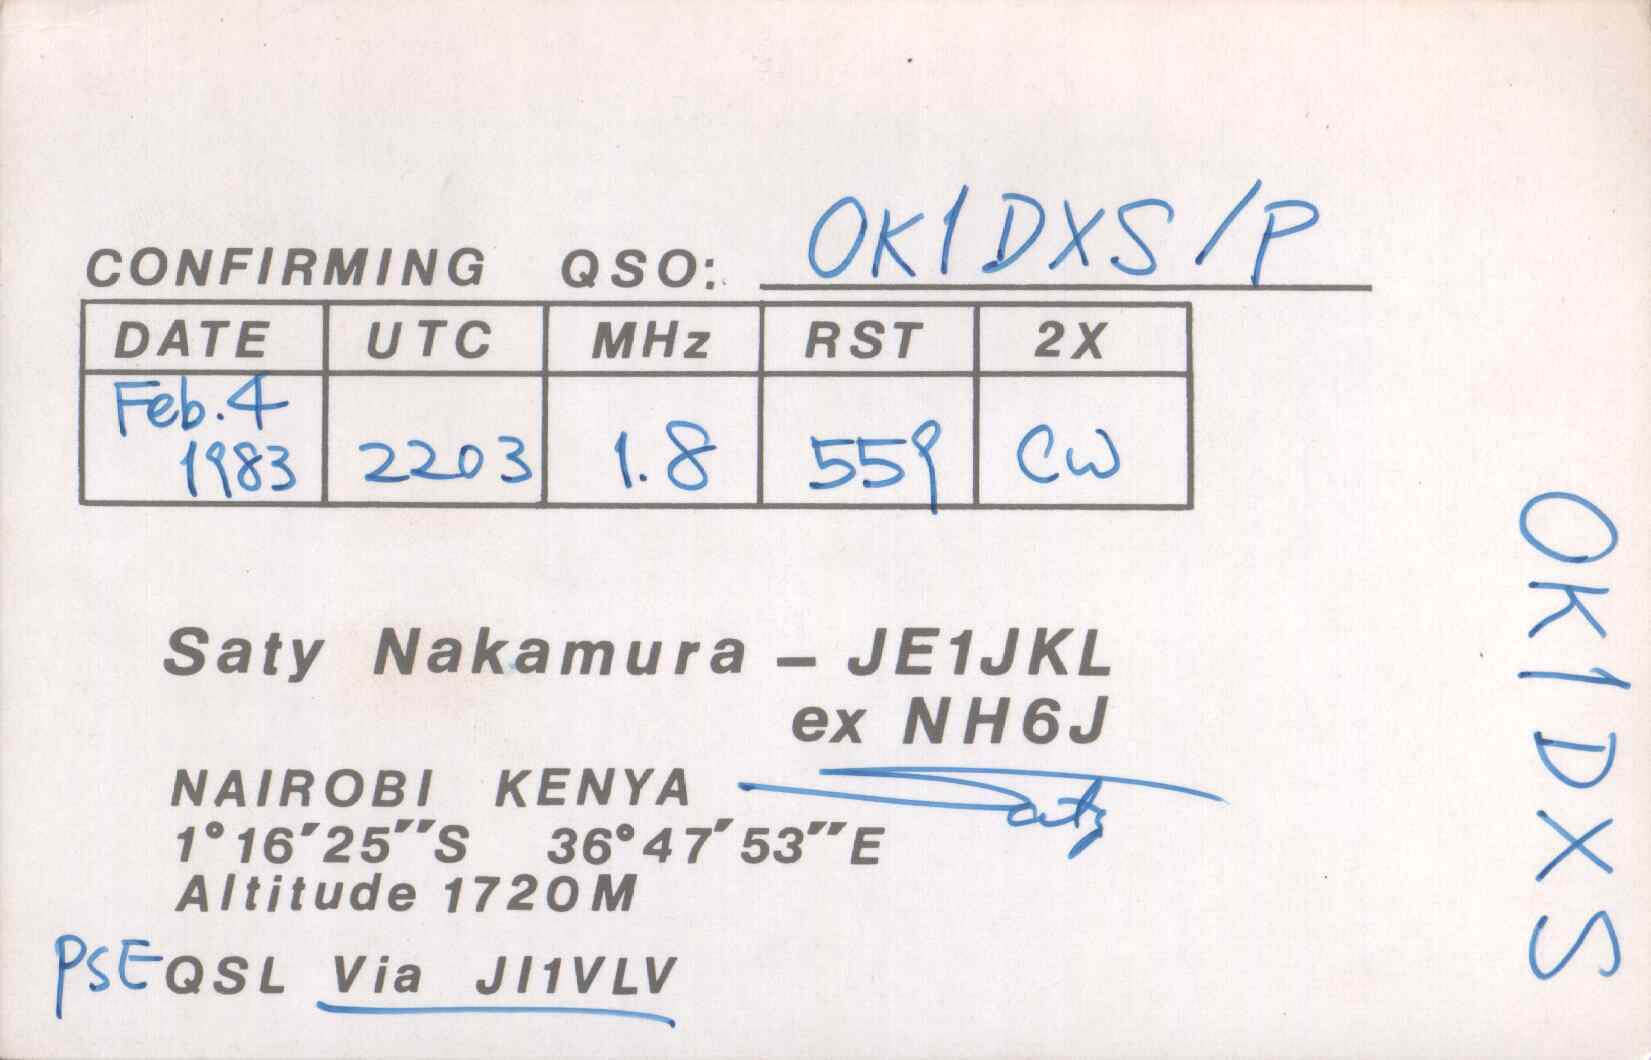 CONFIRMING QSO: OK1DXS/P
DATE UTC MHz RST 2X
Feb. 4
1983 2203 1.8 559 CW
Saty Nakamura – JE1JKL
ex NH6J
NAIROBI KENYA Saty
1°16′25″S 36°47′53″E
Altitude 1720M
PSE QSL Via JI1VLV
OK1DXS